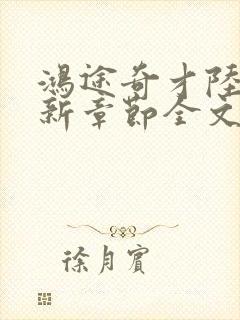 鴻途奇才陸
新章節全文
徐月賓